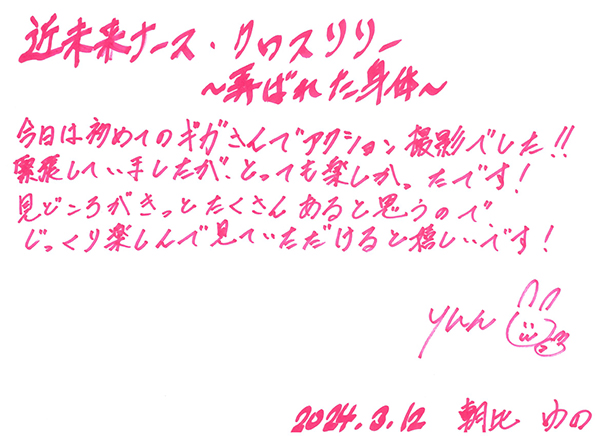 近未来ナース・クロスリリー
～弄ばれた身体～
今日は初めてのギガさんでアクション撮影でした!!
緊張していましたが、とっても楽しかったです!
見どころがきっとたくさんあると思うので
じっくり楽しんで見ていただけると嬉しいです!
yun
2024.3.12 朝比 ゆの